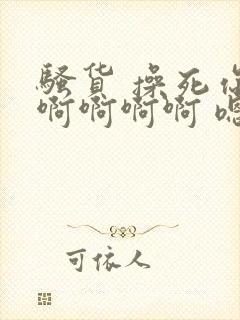 骚货 操死
啊啊啊啊
可依人